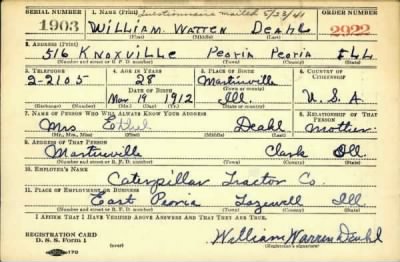 SERIAL NUMBER 1. NAME (Print) Questionnaire mailed 5/23/41 ORDER NUMBER
1903 William Watten Deahl 2922
(First) (Middle) (Last)
2. ADDRESS (Print)
516 Knoxville Peoria Peoria Ill
(Number and street or R. F. D. number) (Town) (County) (State)
3. TELEPHONE 4. AGE IN YEARS 5. PLACE OF BIRTH 6. COUNTRY OF CITIZENSHIP
2-2105 28 Martinsville
DATE OF BIRTH (Town or county)
Mar. 1912 Ill. U.S.A.
(Exchange) (Number) (Mo.) (Day) (Yr.) (State or country)
7. NAME OF PERSON WHO WILL ALWAYS KNOW YOUR ADDRESS 8. RELATIONSHIP OF THAT PERSON
Mrs Ethel Deahl Mother
(Mr., Mrs., Miss) (First) (Middle) (Last)
9. ADDRESS OF THAT PERSON
Martinsville Clark Ill
(Number and street or R. F. D. number) (Town) (County) (State)
10. EMPLOYER'S NAME
Caterpillar Tractor Co.
11. PLACE OF EMPLOYMENT OR BUSINESS
East Peoria Tazewell Ill.
(Number and street or R. F. D. number) (Town) (County) (State)
I AFFIRM THAT I HAVE VERIFIED ABOVE ANSWERS AND THAT THEY ARE TRUE.
REGISTRATION CARD
D. S. S. Form 1 (over) William Warren Deahl
(Registrant's signature)